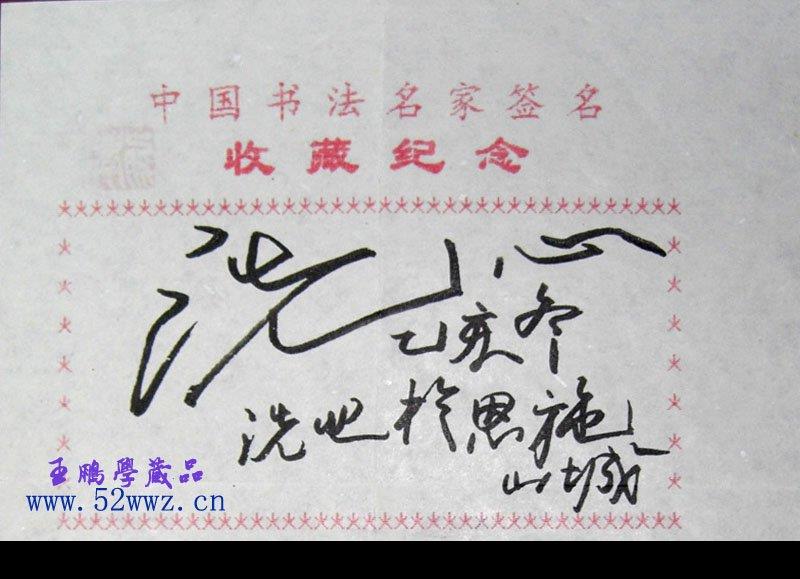 中国书法名家签名
收藏纪念
洗心
乙亥冬
洗心於恩施
山城
王鵬學藏品
www.52wwz.cn